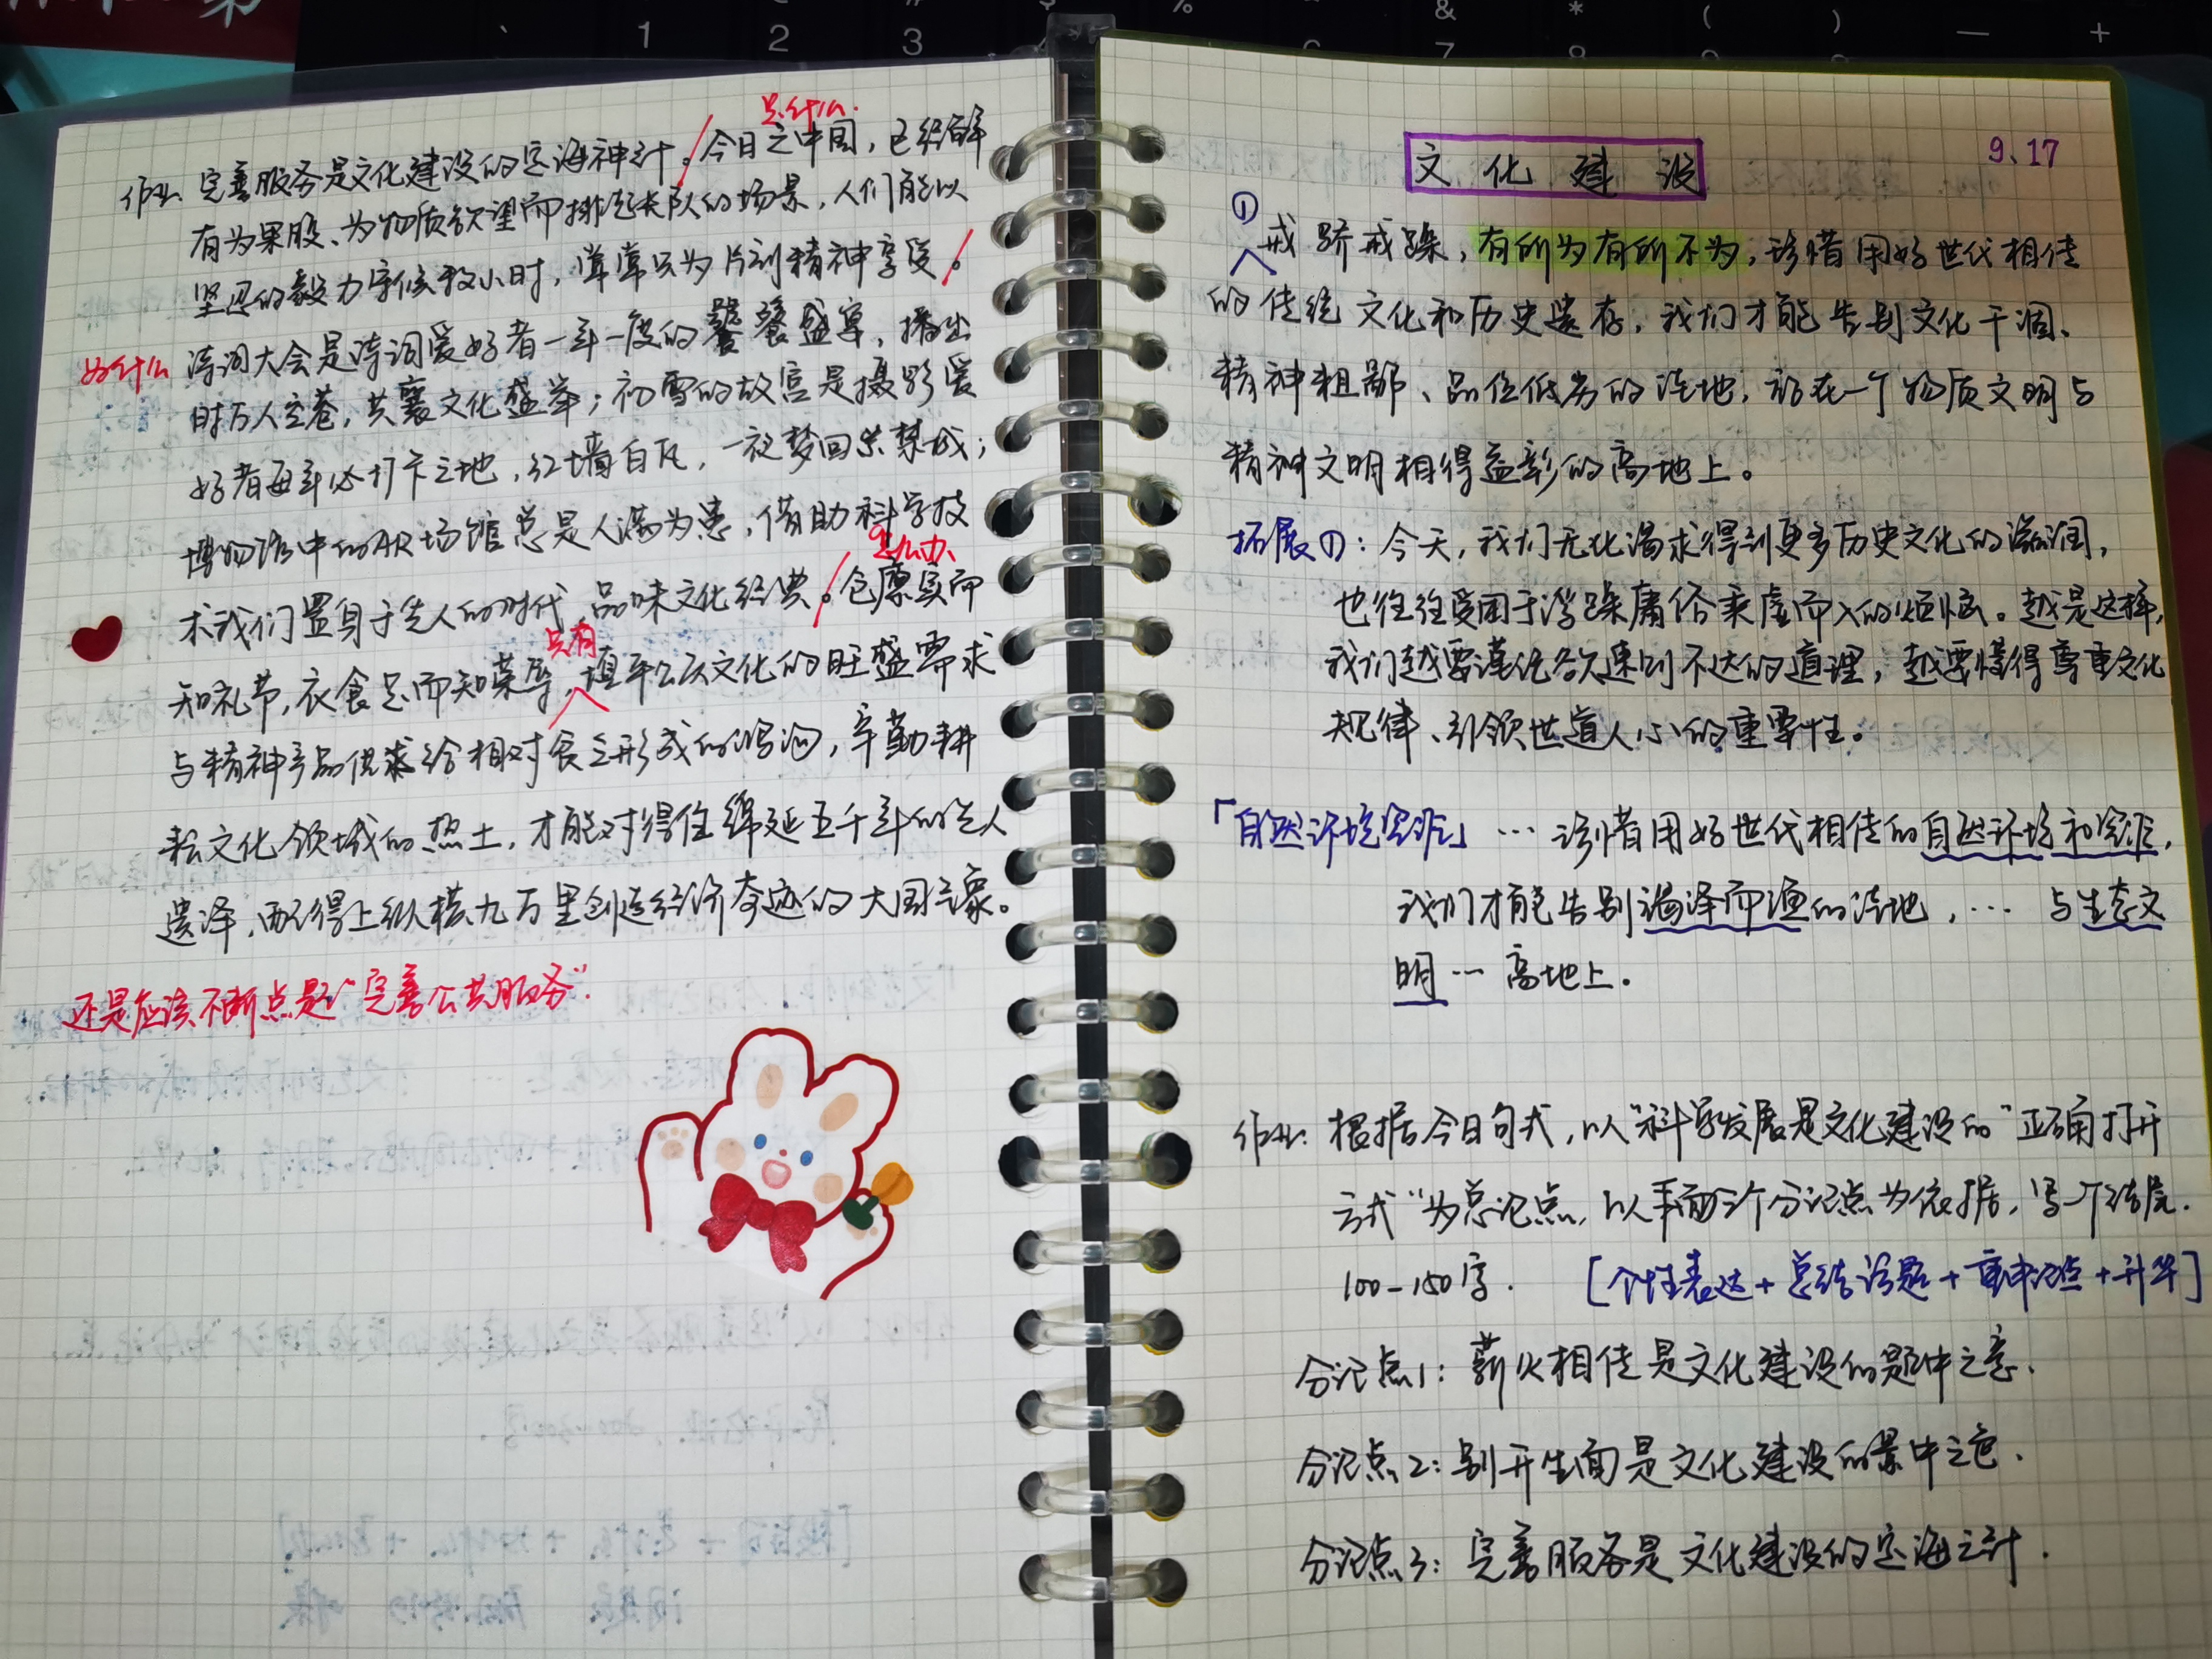 是什么.
作业: 完善服务是文化建设的定海神针。今日之中国,已经鲜
有为果股、为物质欲望而排起长队的场景,人们能以
坚忍的毅力守候数小时,常常只为片刻精神享受。
为什么 诗词大会是诗词爱好者一年一度的饕餮盛宴,播出
时万人空巷,共襄文化盛举;初雪的故宫是摄影爱
好者每年必打卡之地,红墙白瓦,一夜梦回紫禁城;
博物馆中的AR场馆总是人满为患,借助科学技
怎么办、
术我们置身于先人的时代,品味文化经典。仓廪实而
只有
知礼节,衣食足而知荣辱,填平公众文化的旺盛需求
与精神产品供给相对食乏形成的鸿沟,辛勤耕
耘文化领域的热土,才能对得住绵延五千年的先人
遗泽,配得上纵横九万里创造经济奇迹的大国气象。
还是应该不断点题“完善公共服务”.
文化建设
9.17
①
戒骄戒躁,有所为有所不为,珍惜用好世代相传
的传统文化和历史遗存,我们才能告别文化干涸、
精神粗鄙、品位低劣的洼地,站在一个物质文明与
精神文明相得益彰的高地上。
拓展①:今天,我们无比渴求得到更多历史文化的滋润,
也往往受困于浮躁庸俗乘虚而入的烦恼。越是这样,
我们越要谨记欲速则不达的道理,越要懂得尊重文化
规律、引领世道人心的重要性。
「自然环境资源」…珍惜用好世代相传的自然环境和资源,
我们才能告别竭泽而渔的洼地,… 与生态文
明…高地上。
作业:根据今日句式,以“科学发展是文化建设的“正确打开
方式”为总论点,以下面3个分论点为依据,写一个结尾.
100-150字. [个性表达+总结话题+重申论点+升华]
分论点1:薪火相传是文化建设的题中之意.
分论点2:别开生面是文化建设的景中之色.
分论点3:完善服务是文化建设的定海之针.